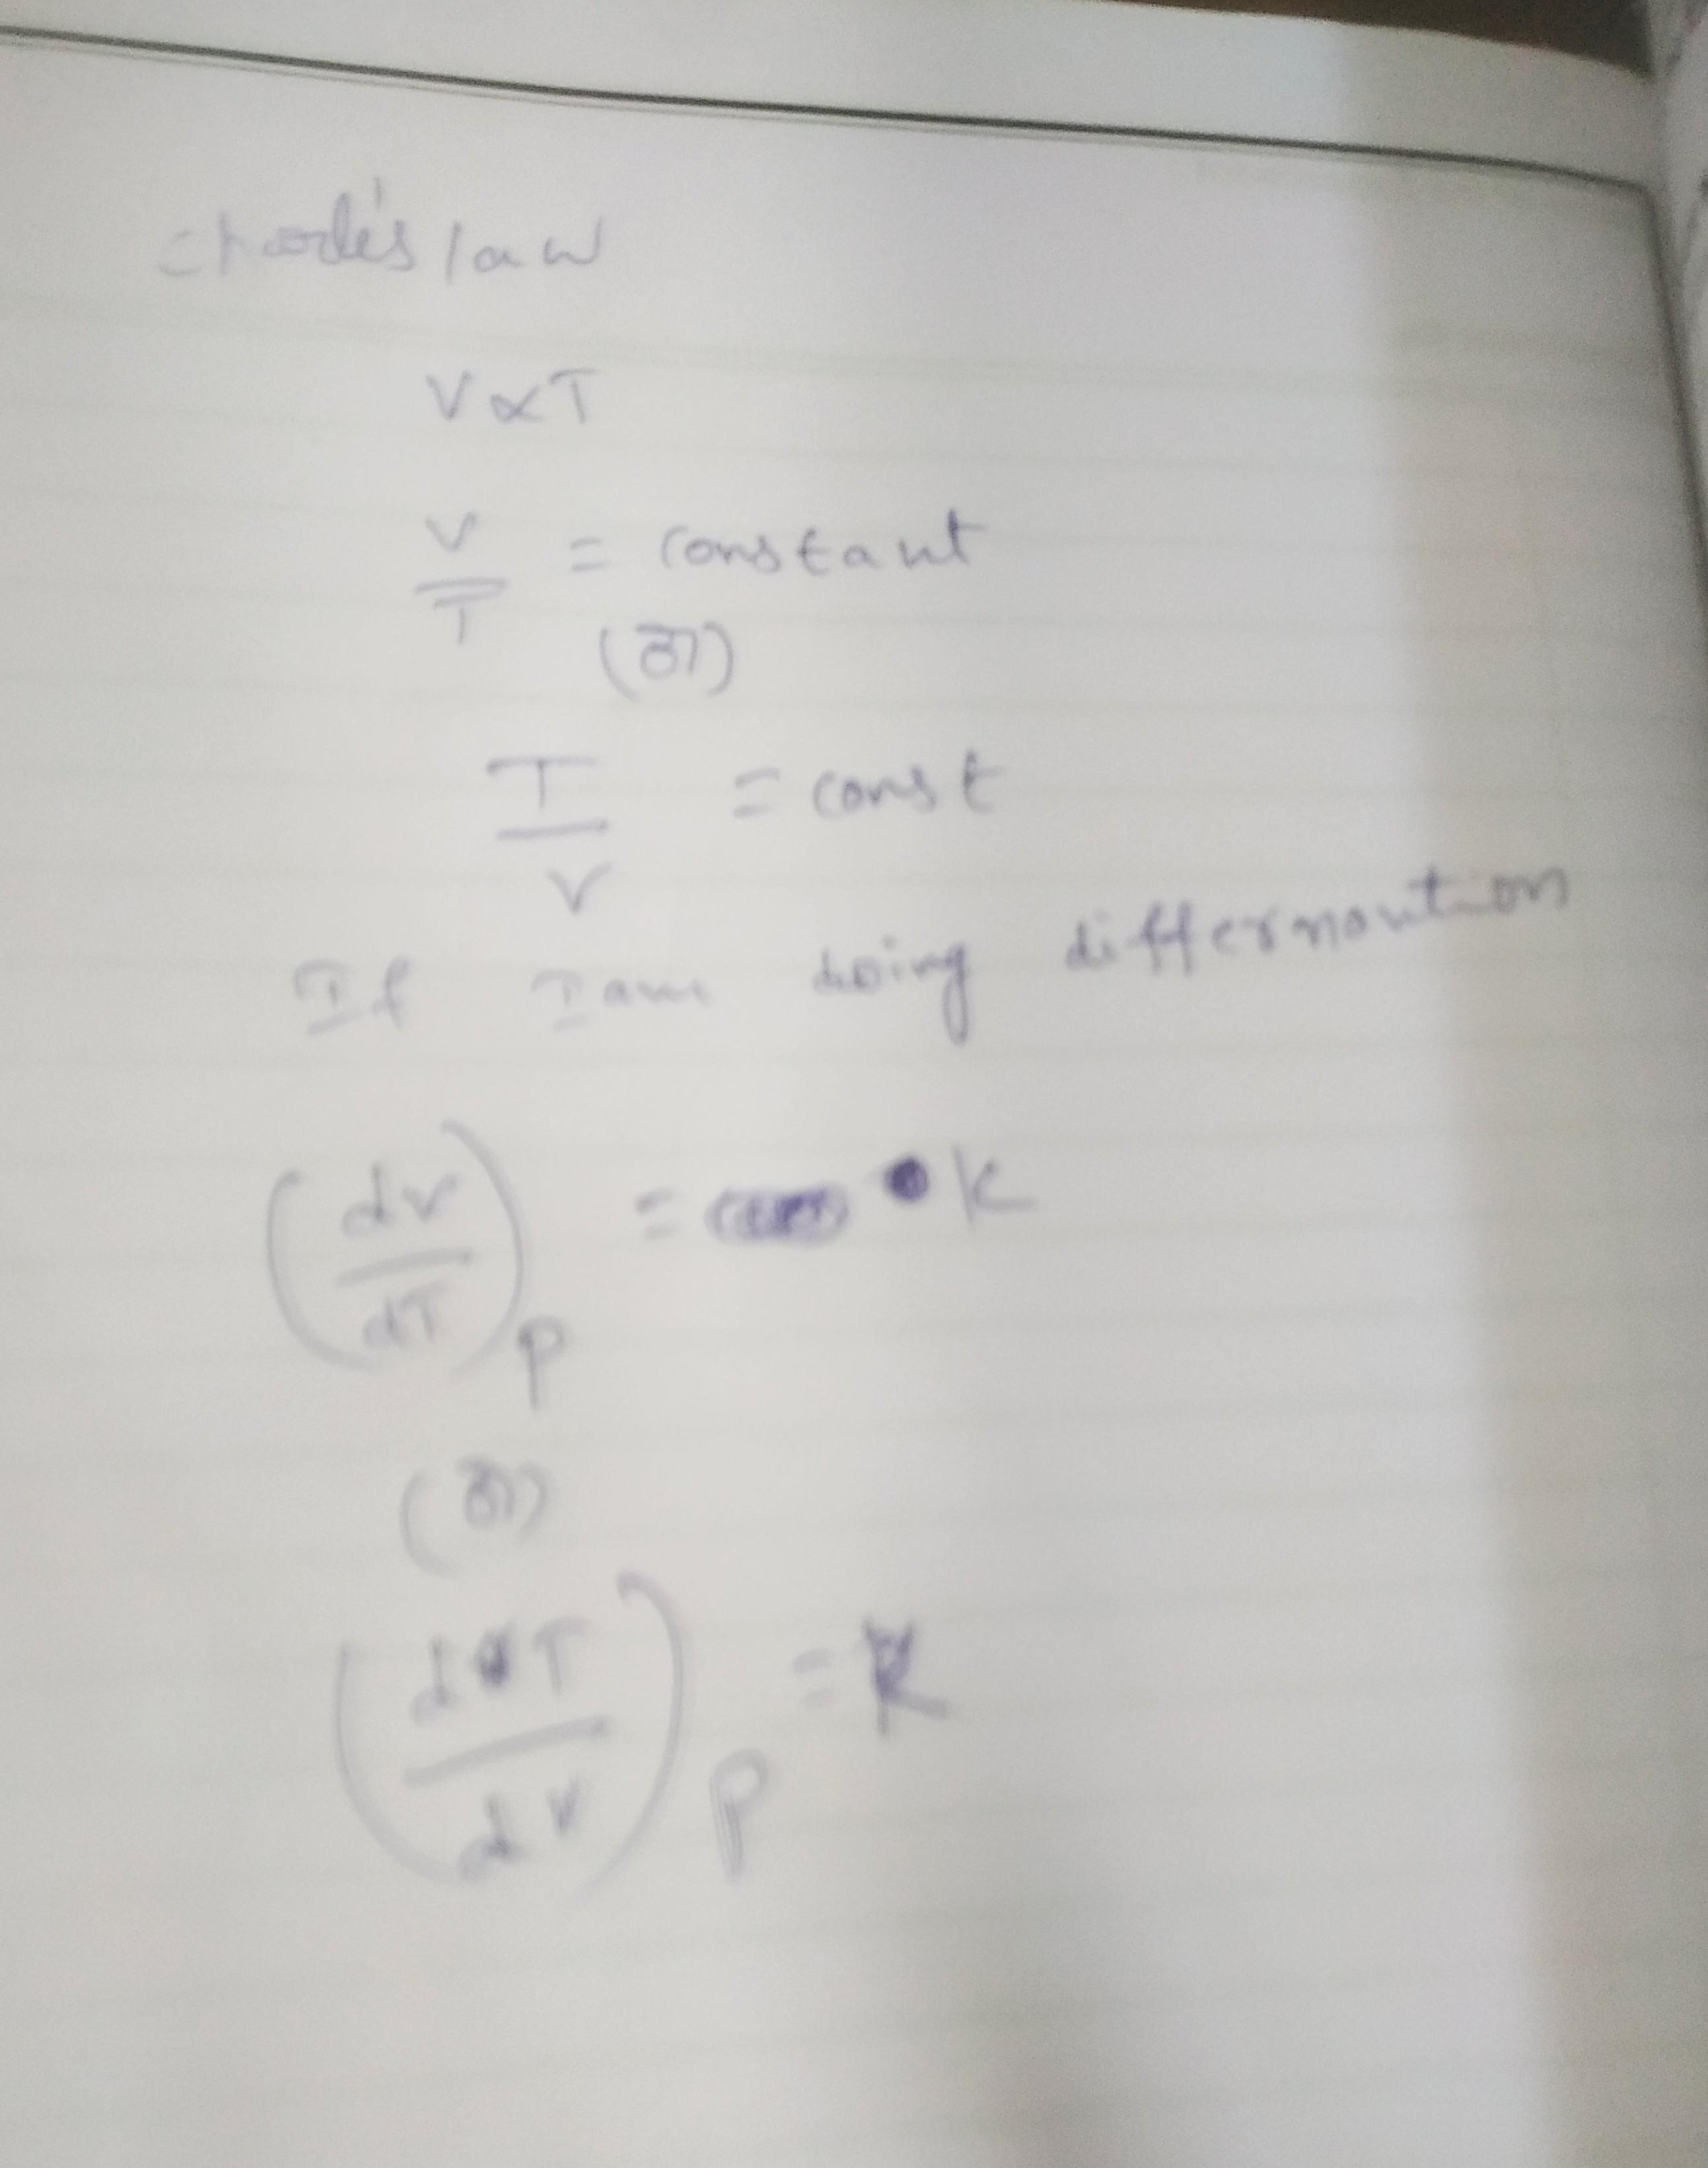 charle's law
V ∝ T
V/T = constant
(or)
T/V = const
If I am doing differnation
(dv/dT)P = K
(or)
(dT/dv)P = K